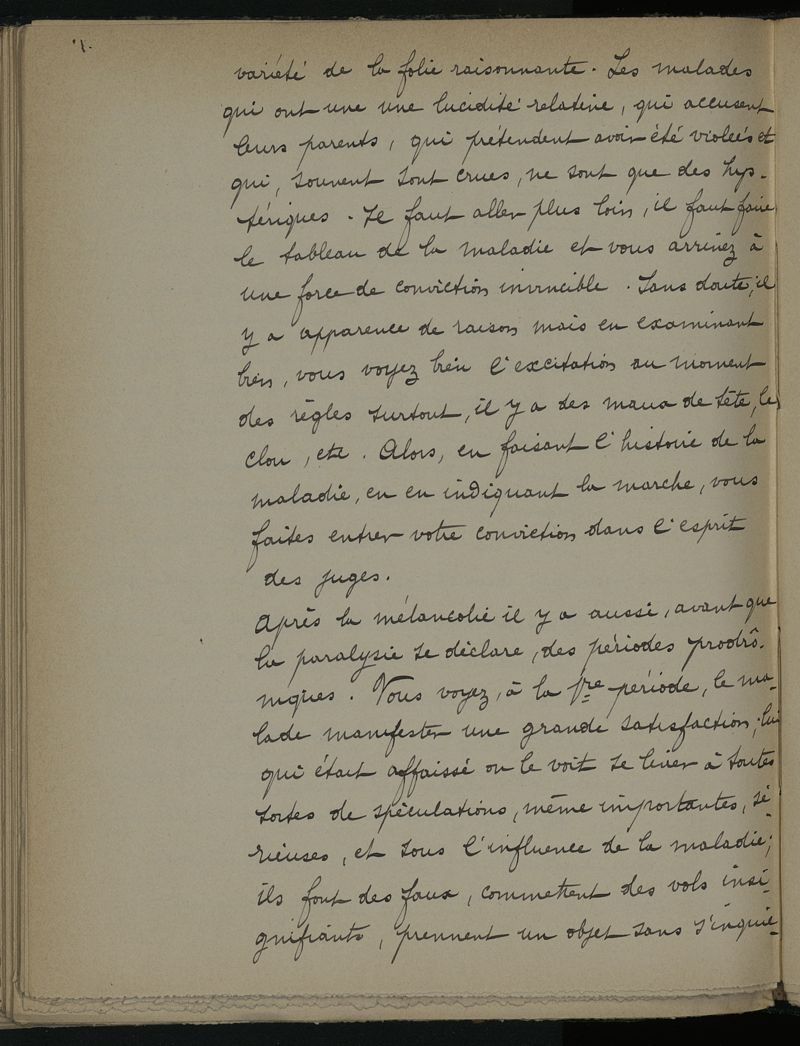 variété de la folie raisonnante. Les malades
qui ont une une lucidité relative, qui accusent
leurs parents, qui prétendent avoir été violées et
qui, souvent sont crues, ne sont que des hys-
tériques. Il faut aller plus loin, il faut faire
le tableau de la maladie et vous arrivez à
une force de conviction invincible. Sans doute, il
y a apparence de raison mais en examinant
bien, vous voyez bien l'excitation au moment
des règles surtout, il y a des maux de tête, le
clou, etc. Alors, en faisant l'histoire de la
maladie, en en indiquant la marche, vous
faites entrer votre conviction dans l'esprit
des juges.
Après la mélancolie il y a aussi, avant que
la paralysie se déclare, des périodes prodrô-
miques. Vous voyez, à la 1re période, le ma-
lade manifester une grande satisfaction; lui
qui était affaissé on le voit se livrer à toutes
sortes de spéculations, même importantes, sé-
rieuses, et sous l'influence de la maladie;
ils font des faux, commettent des vols insi-
gnifiants, prennent un objet sans s'inquié-